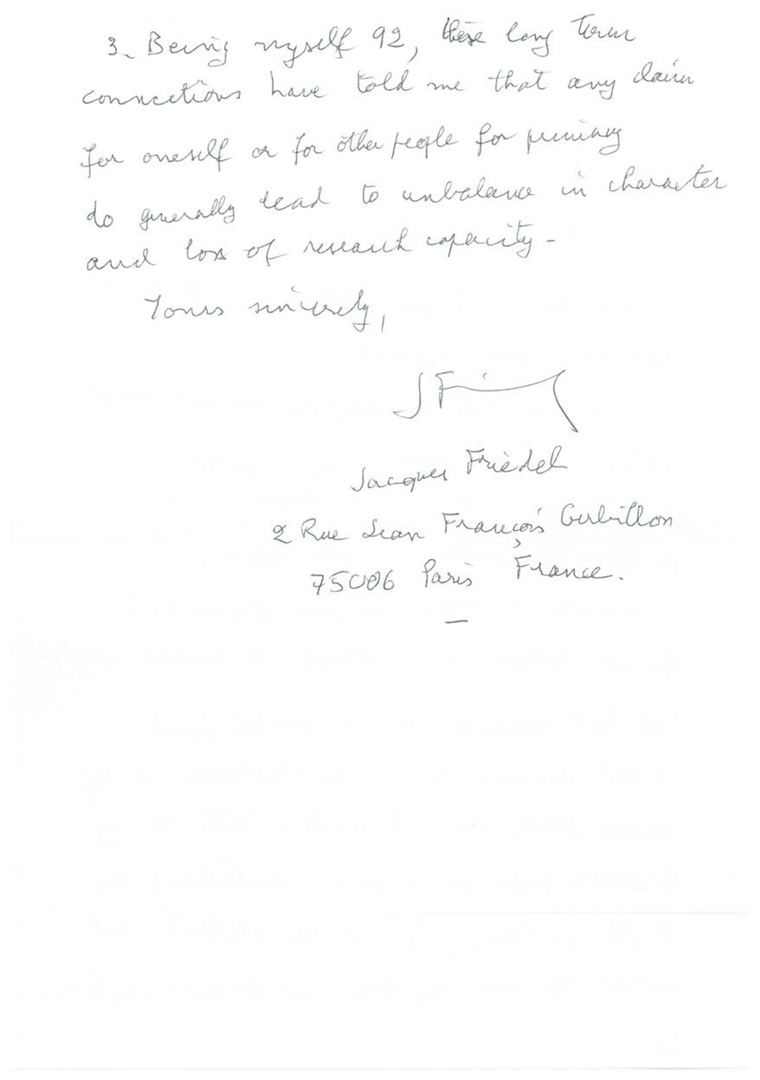 3. Being myself 92, these long term
connections have told me that any claim
for oneself or for other people for primacy
do generally lead to unbalance in character
and loss of research capacity -
Yours sincerely,
J F
Jacques Friedel
2 Rue Jean François Gerbillon
75006 Paris France.